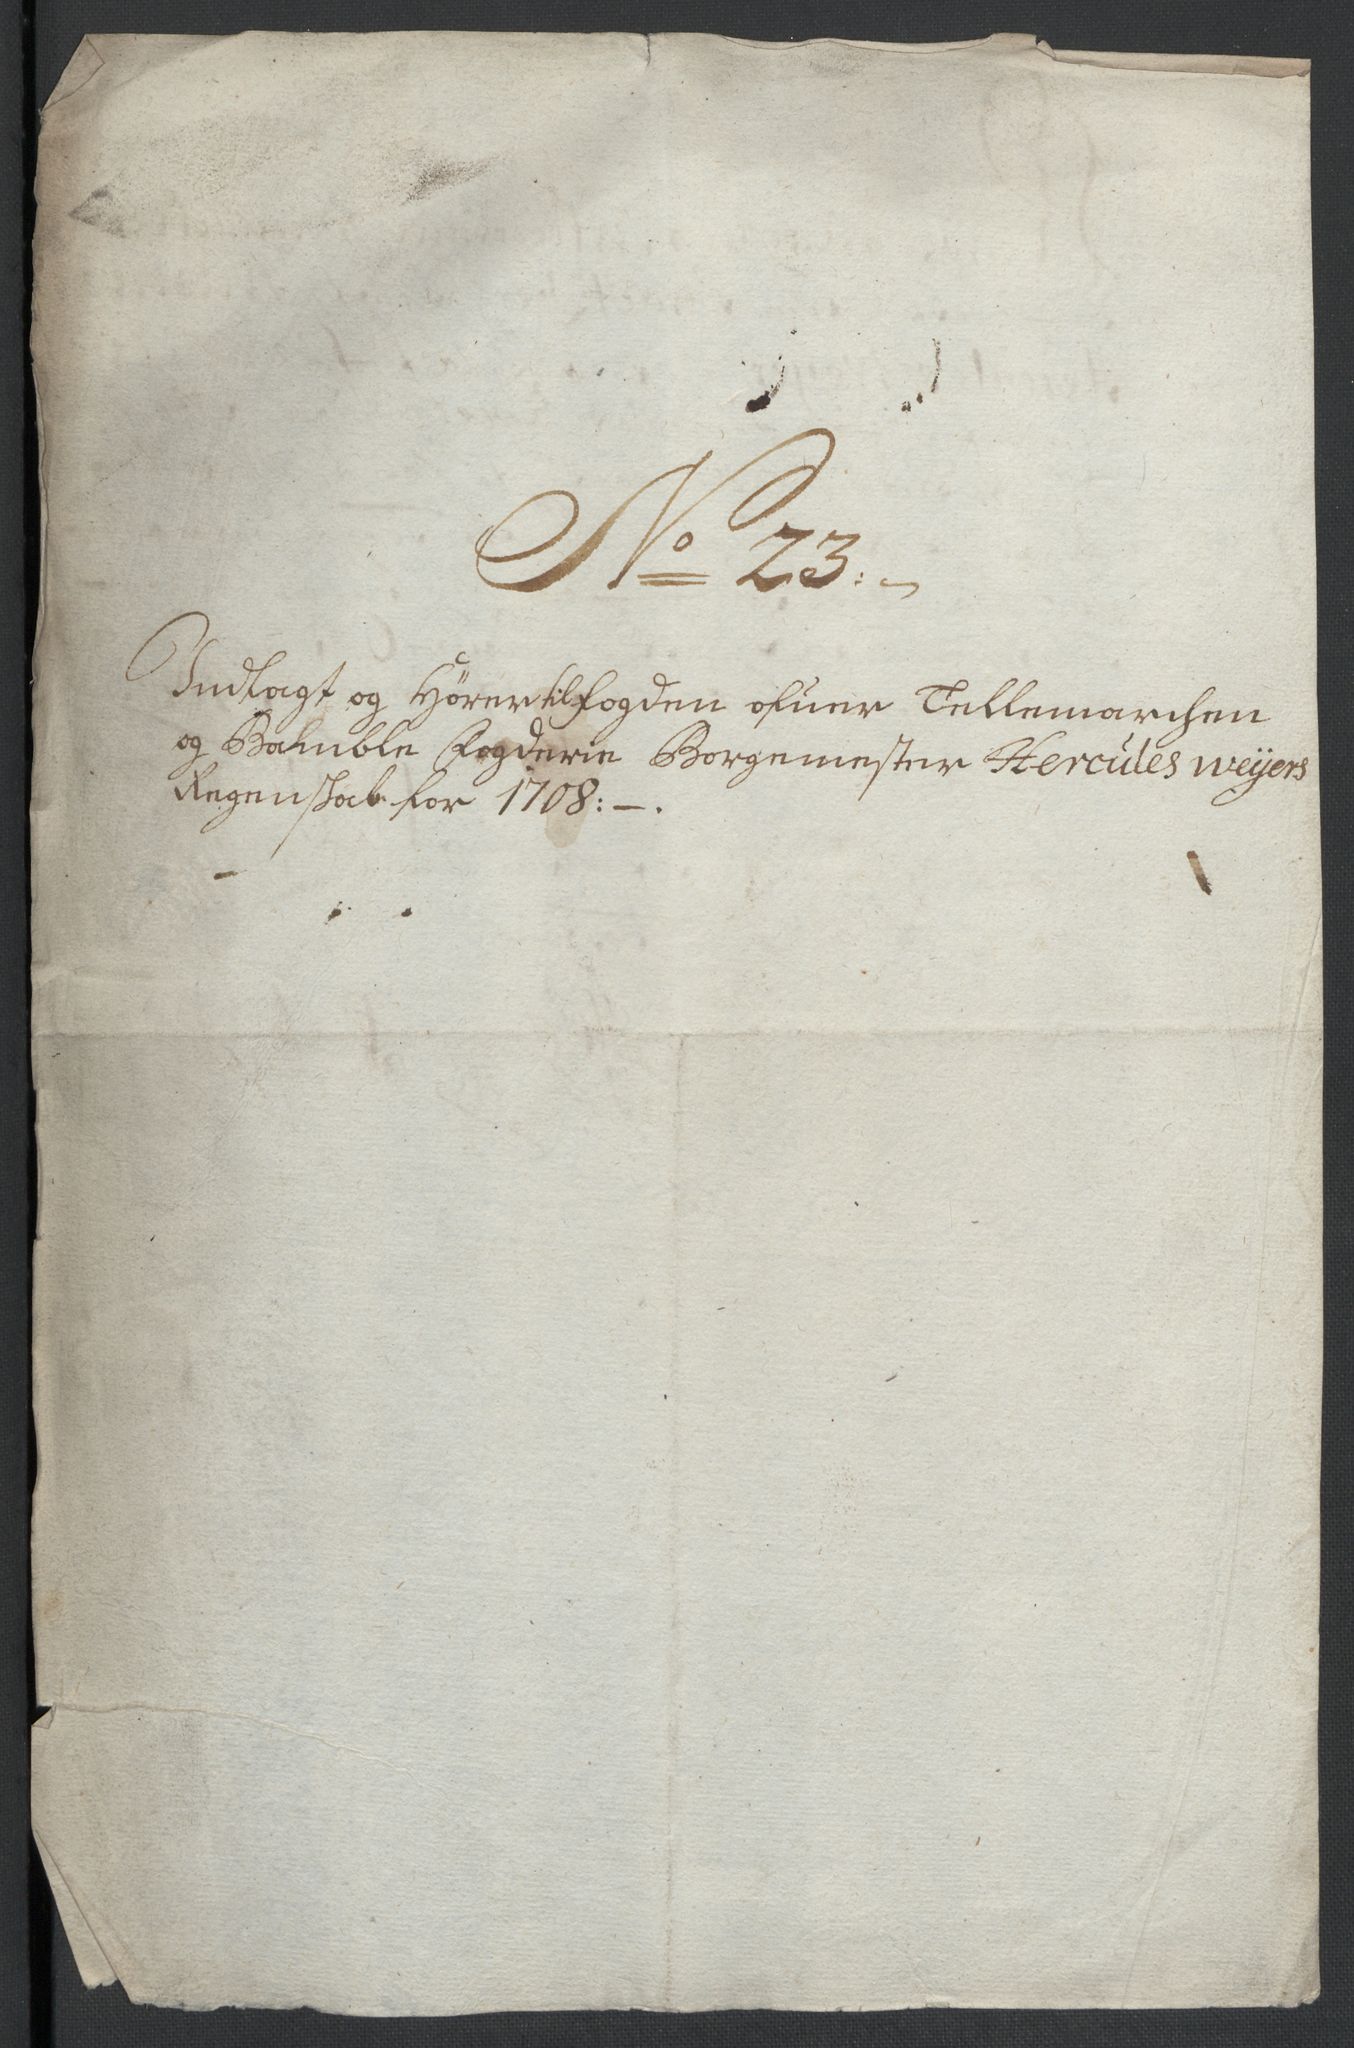 No 23:
Indlagt og Hører til fogden ofuer Tellemarchen
og Bamble fogderie Borgemester Hercules weÿers
Regenskab for 1708: